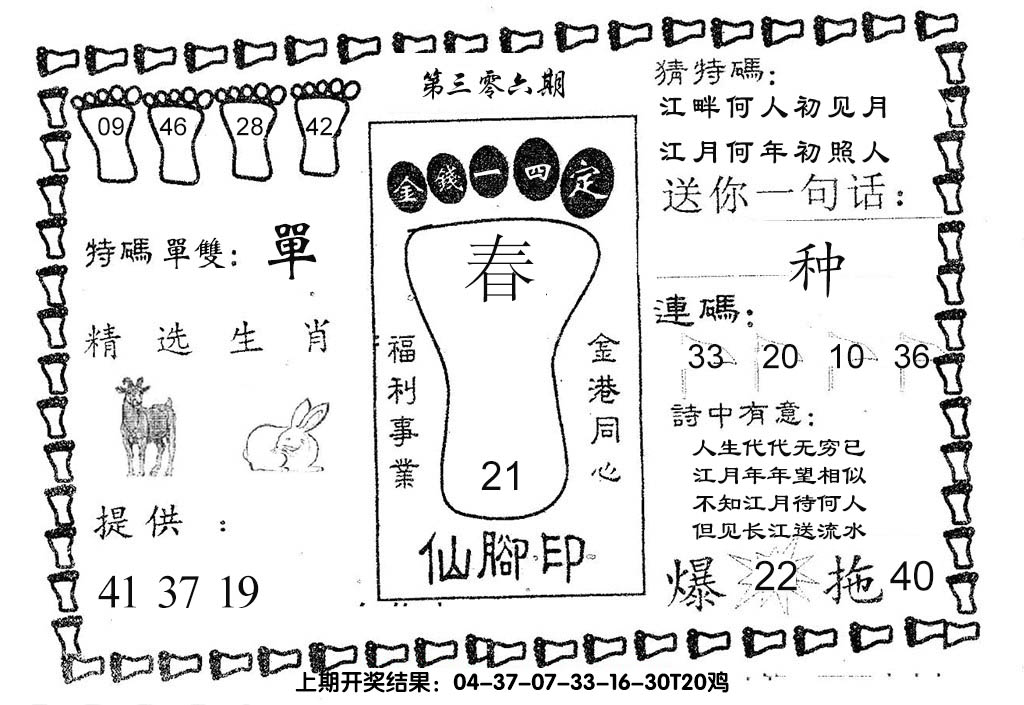 第三零六期
09 46 28 42
特碼單雙：單
精选生肖
提供：
41 37 19
金錢一四定
春
福利事業
金港同心
21
仙腳印
猜特碼：
江畔何人初见月
江月何年初照人
送你一句话：
种
連碼：
33 20 10 36
詩中有意：
人生代代无穷已
江月年年望相似
不知江月待何人
但见长江送流水
爆 22 拖 40
上期开奖结果：04-37-07-33-16-30T20鸡